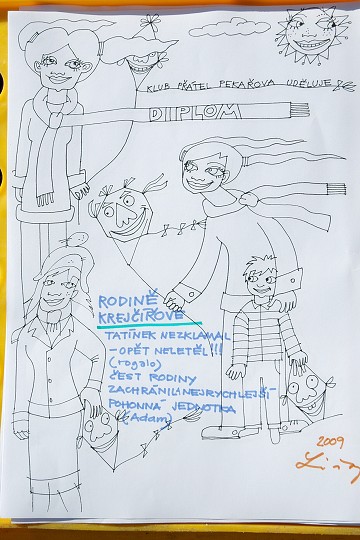 KLUB PŘÁTEL PEKAŘOVA UDĚLUJE
DIPLOM
RODINĚ
KREJČÍŘOVĚ
TATÍNEK NEZKLAMAL
- OPĚT NELETĚL!!!
(rogalo)
ČEST RODINY
ZACHRÁNIL: NEJRYCHLEJŠÍ
POHONNÁ JEDNOTKA
(Adam)
2009